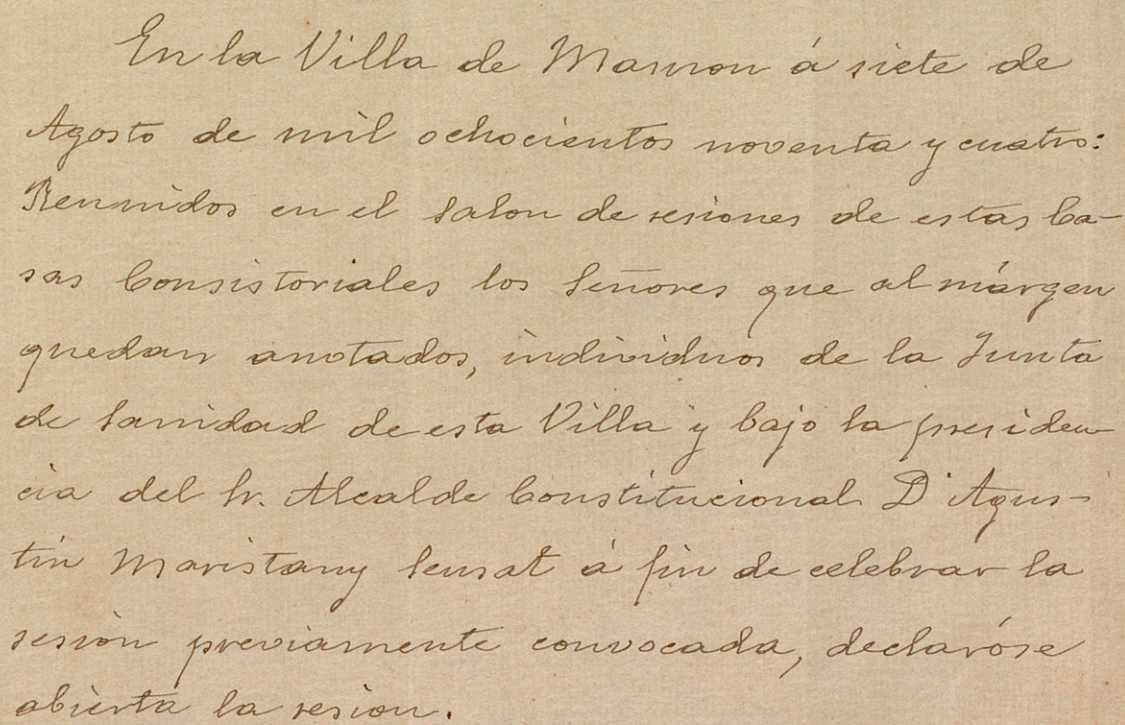 En la Villa de Masnou á siete de
Agosto de mil ochocientos noventa y cuatro:
Reunidos en el Salon de sesiones de estas Ca-
sas Consistoriales los Señores que al márgen
quedan anotados, individuos de la Junta
de Sanidad de esta Villa y bajo la presiden-
cia del Sr. Alcalde Constitucional D. Agus-
tín Maristany Sensat á fin de celebrar la
sesión previamente convocada, declaróse
abierta la sesion.